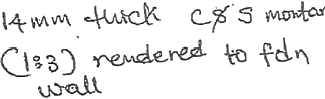 14 mm thick C & S mortar
(1:3) rendered to fdn
wall